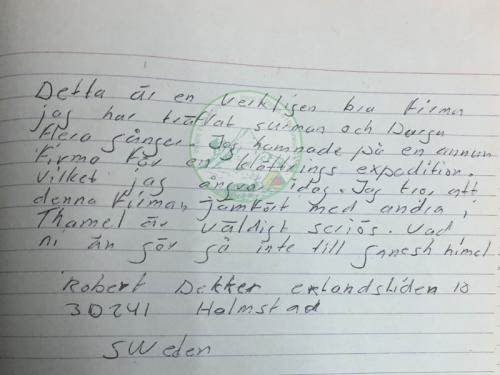 Detta är en verkligen bra firma
jag har träffat suman och Durga
flera gånger. Jag hamnade på en annan
firma för en klättrings expedition.
vilket jag ångrar idag. Jag tror att
denna firman, jämfört med andra i
Thamel är väldigt seriös. Vad
ni än gör gå inte till ganesh himal
Robert Dekker erlandsliden 10
30241 Halmstad
SWeden